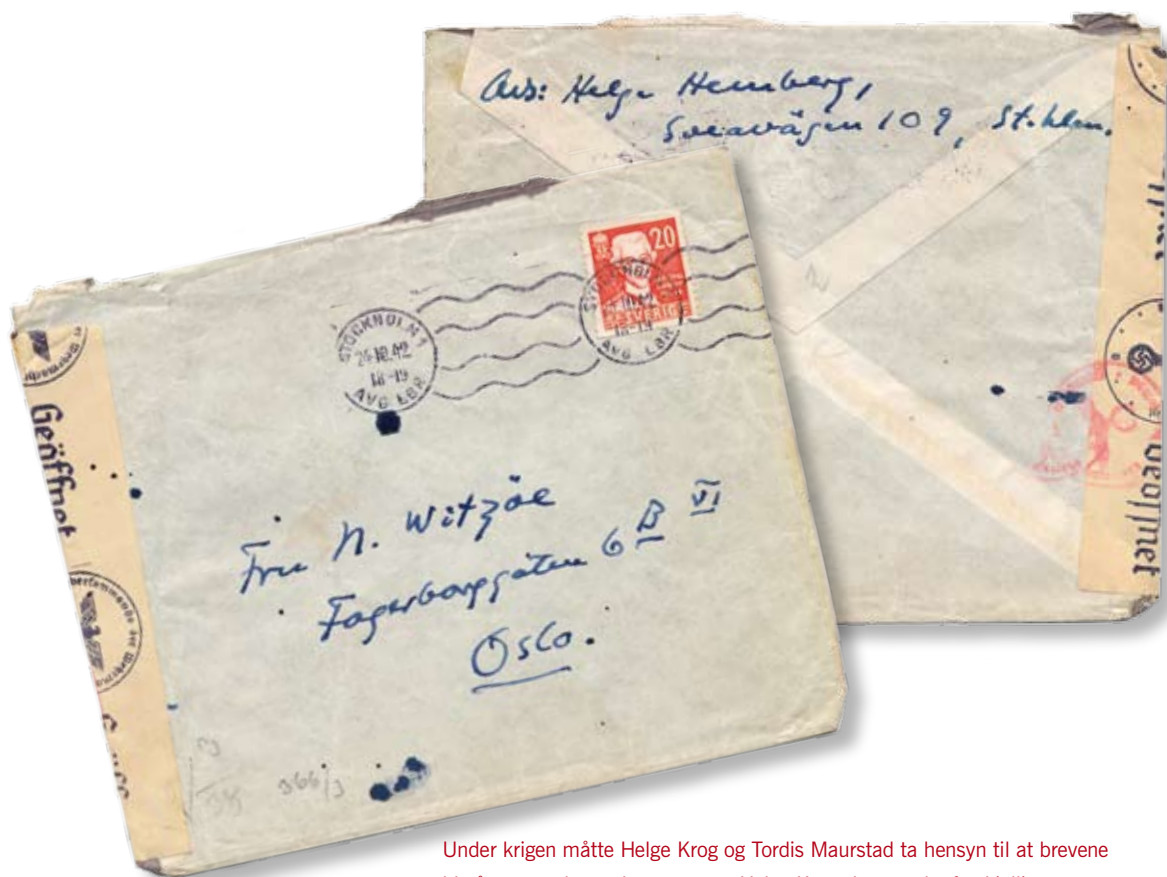 Avs: Helge Hemberg,
Sveavägen 109, St.hlm.
20
SVERIGE
STOCKHOLM 1
24.10.42
18-19
AVG LBR
18-19
AVG LBR
Geöffnet
Geöffnet
Fru N. Witzøe
Fagerborggáten 6 B VI
Oslo.
366/3
Under krigen måtte Helge Krog og Tordis Maurstad ta hensyn til at brevene